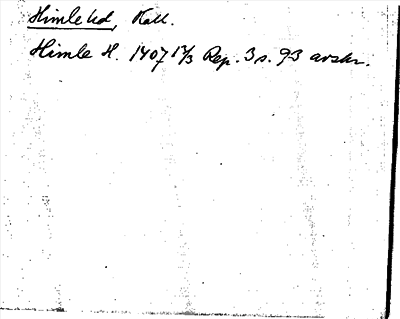 Himle hd, Hall.
Himle H. 1407 17/3 Rep. 3 s. 93 avskr.